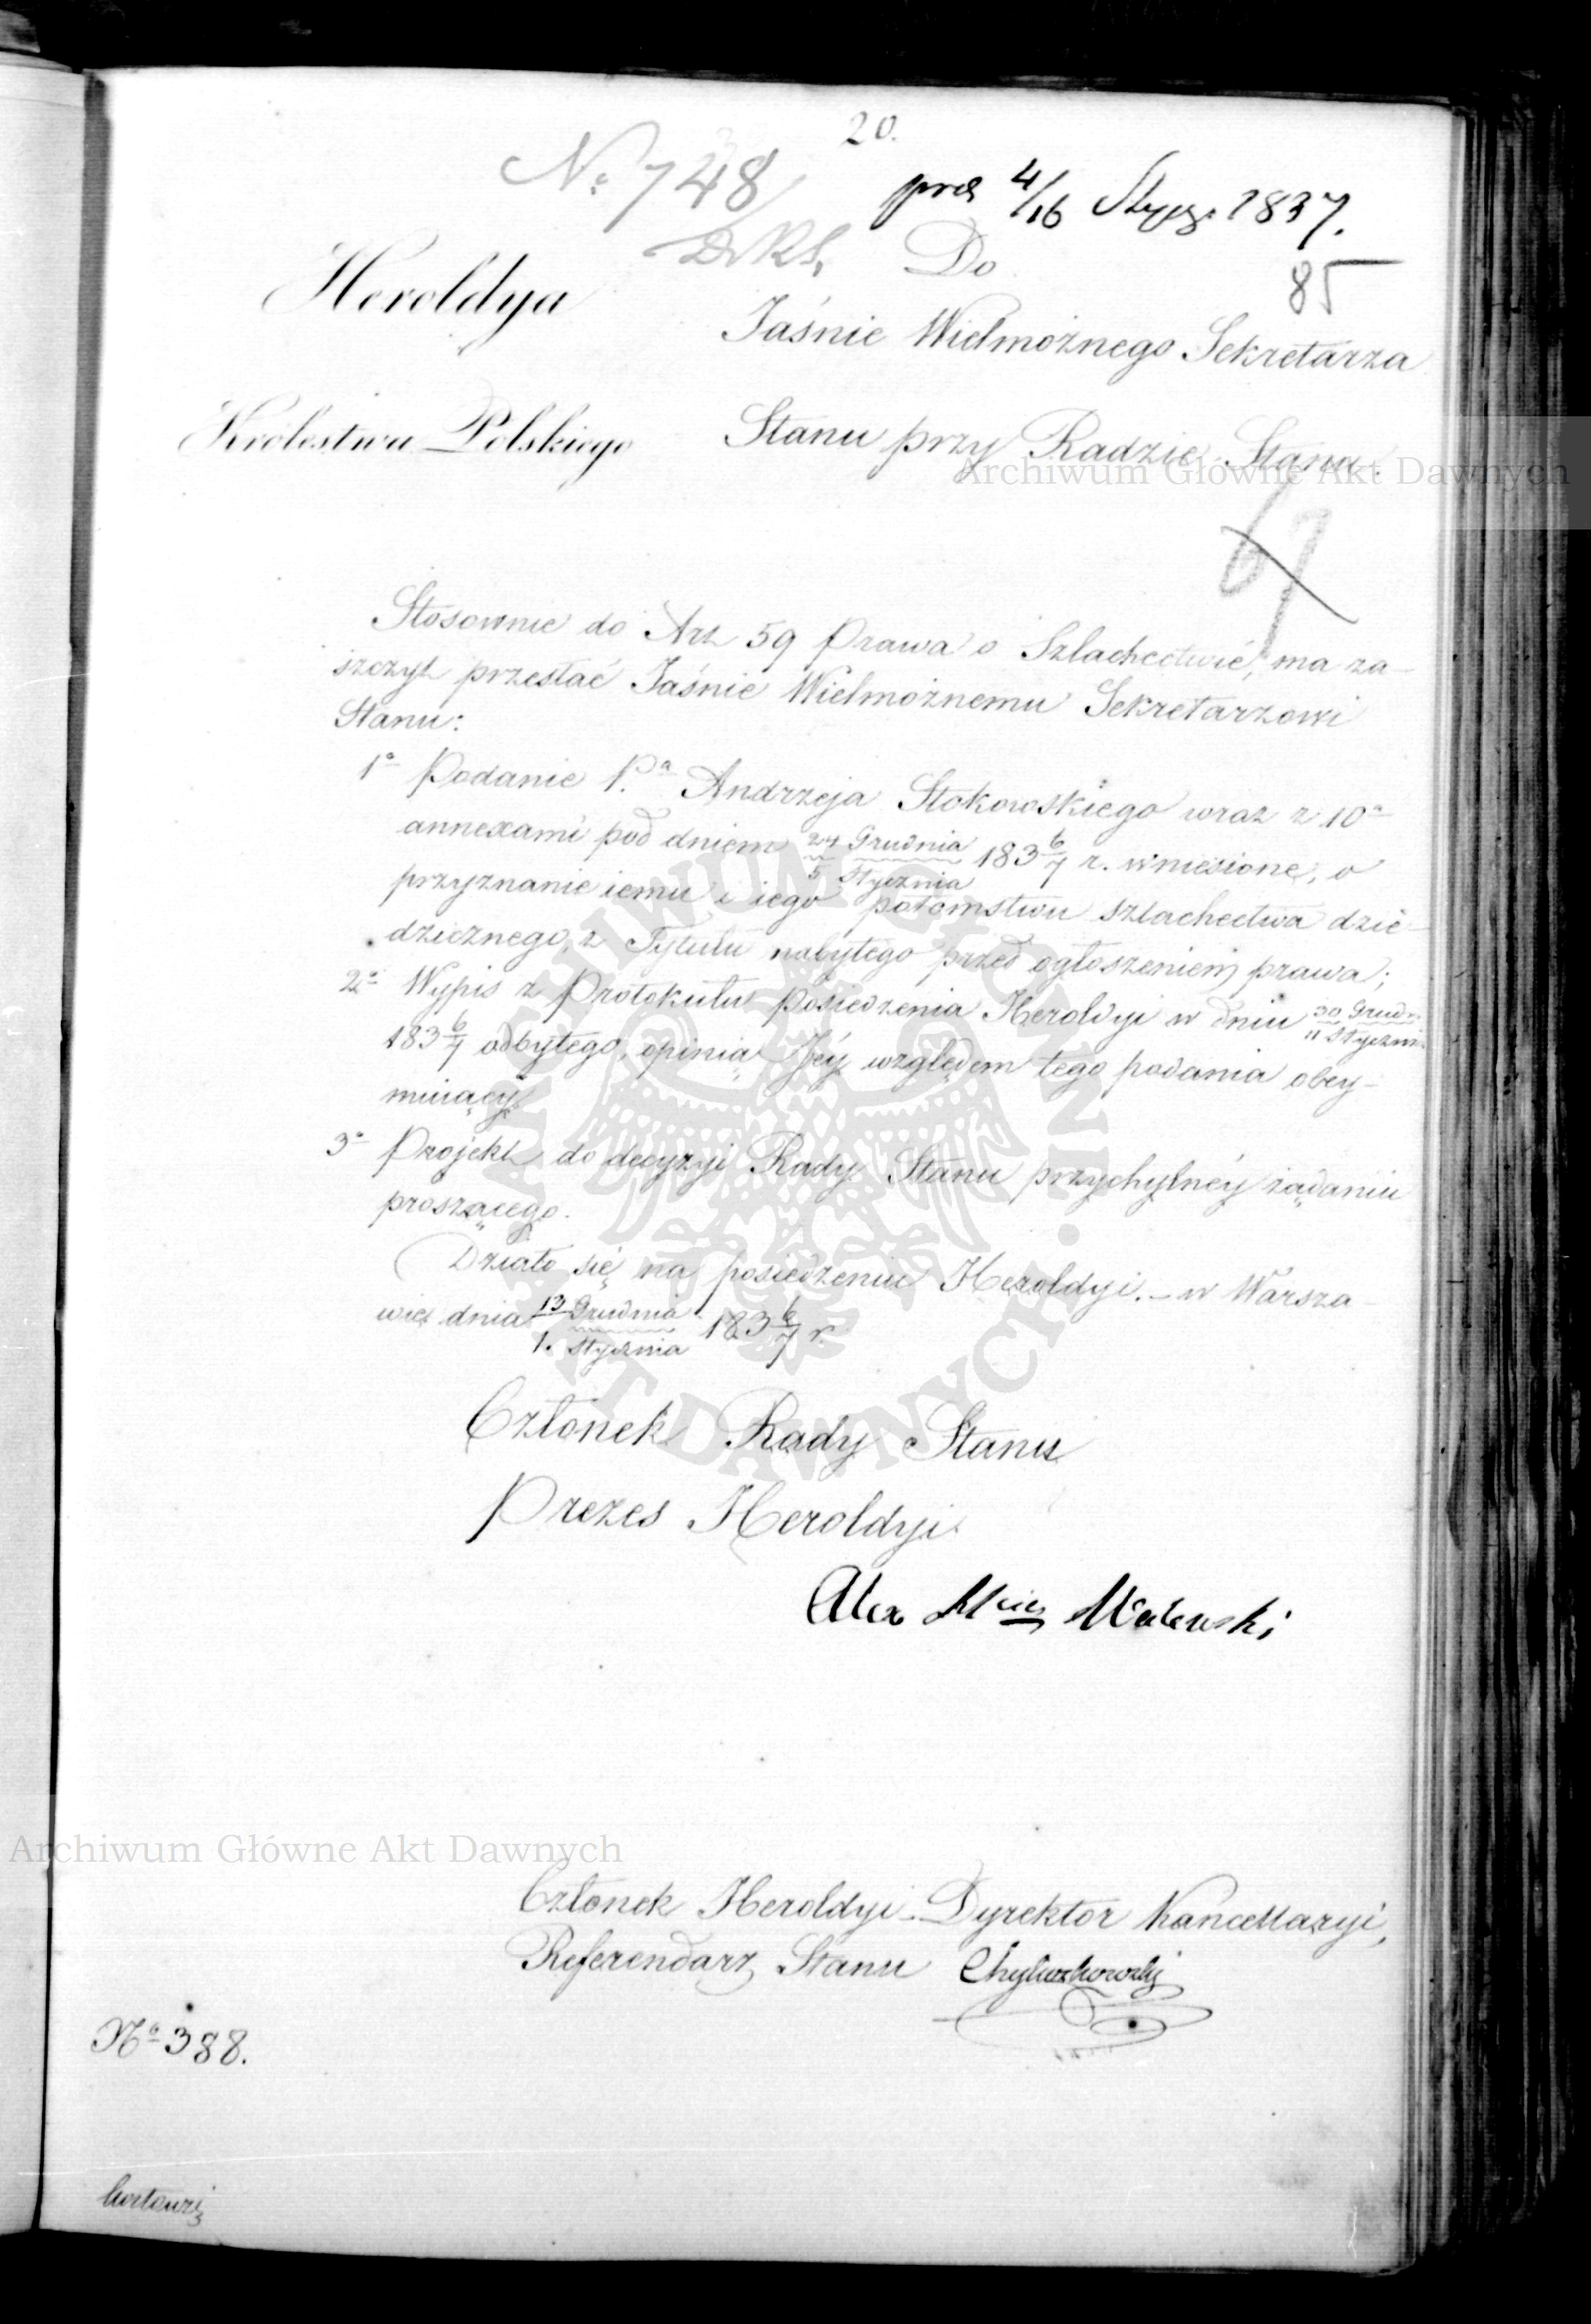 20.
No. 748
pros 4/16 Stycz. 1837.
Do
85
Heroldya
Jaśnie Wielmożnego Sekretarza
Królestwa Polskiego
Stanu przy Radzie Stanu.
Archiwum Główne Akt Dawnych
67
Stosownie do Art 59 Prawa o Szlachectwie, ma za-
szczyt przesłać Jaśnie Wielmożnemu Sekretarzowi
Stanu:
1o Podanie P.a Andrzeja Stokowskiego wraz z 10a
annexami pod dniem 24 Grudnia / 5 Stycznia 183 6/7 r. wniesione, o
przyznanie iemu i iego potomstwu szlachectwa dzie-
dzicznego, z Tytułu nabytego przed ogłoszeniem prawa;
2o Wypis z Protokułu posiedzenia Heroldyi w dniu 30 Grud. / 11 Styczni.
183 6/7 odbytego, opinią Jéy względem tego podania obey-
muiący;
3o Projekt do decyzyi Rady Stanu przychylnéy żądaniu
proszącego.
Działo się na posiedzeniu Heroldyi. – w Warsza-
wie dnia Grudnia / Stycznia 183 6/7 r.
Członek Rady Stanu
Prezes Heroldyi
Alex Walewski
Archiwum Główne Akt Dawnych
Członek Heroldyi – Dyrektor Kancellaryi,
Referendarz Stanu
No 388.
ARCHIWUM GŁÓWNE AKT DAWNYCH